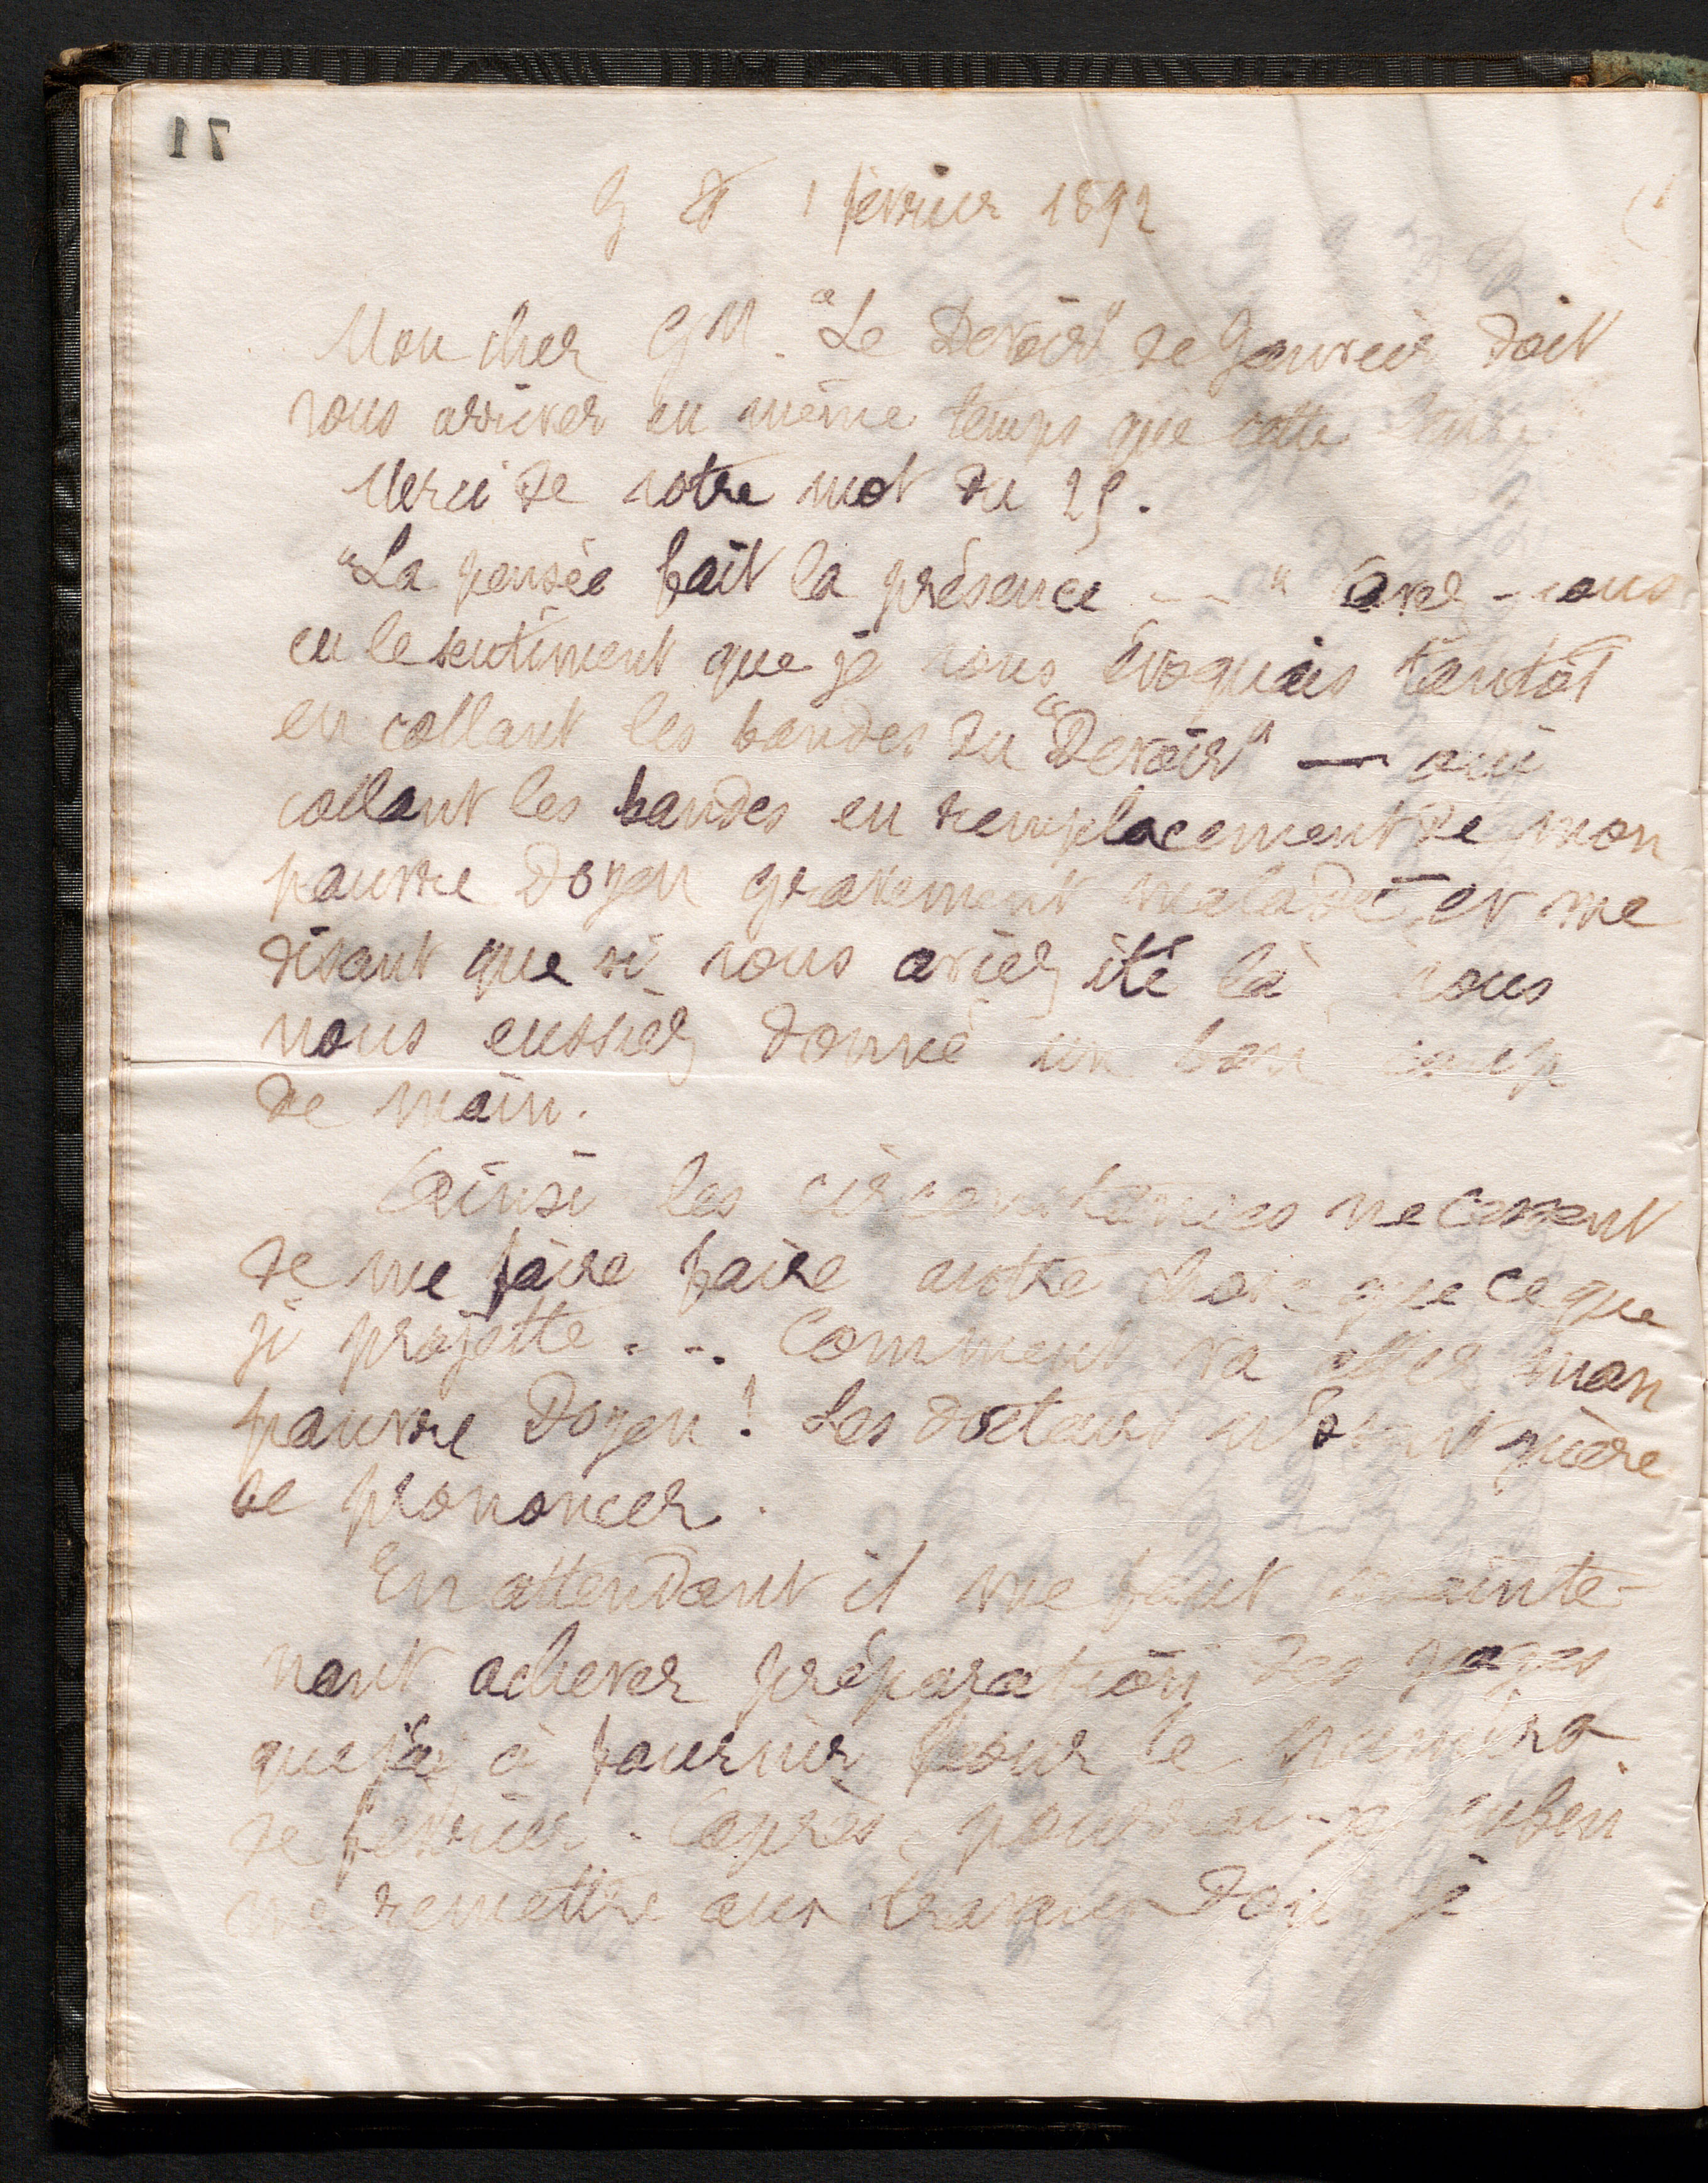 71
G F 1 février 1892
Mon cher GM. "Le Devoir" de Janvier doit
vous arriver en même temps que cette lettre
Merci de votre mot du 25.
"La pensée fait la présence --" Avez-vous
eu le sentiment que je vous évoquais tantôt
en collant les bandes du "Devoir" — oui
collant les bandes en remplacement de mon
pauvre Doyen gravement malade, et me
disant que si vous aviez été là, vous
nous eussiez donné un bon coup
de main.
Ainsi les circonstances ne cessent
de me faire faire autre chose que ce que
je projette... Comment va aller mon
pauvre Doyen! Les docteurs n'osent guère
se prononcer.
En attendant il me faut mainte-
nant achever préparation des pages
que j'ai à fournir pour le numéro
de février. Après, pourrai-je enfin
me remettre aux travaux dont je